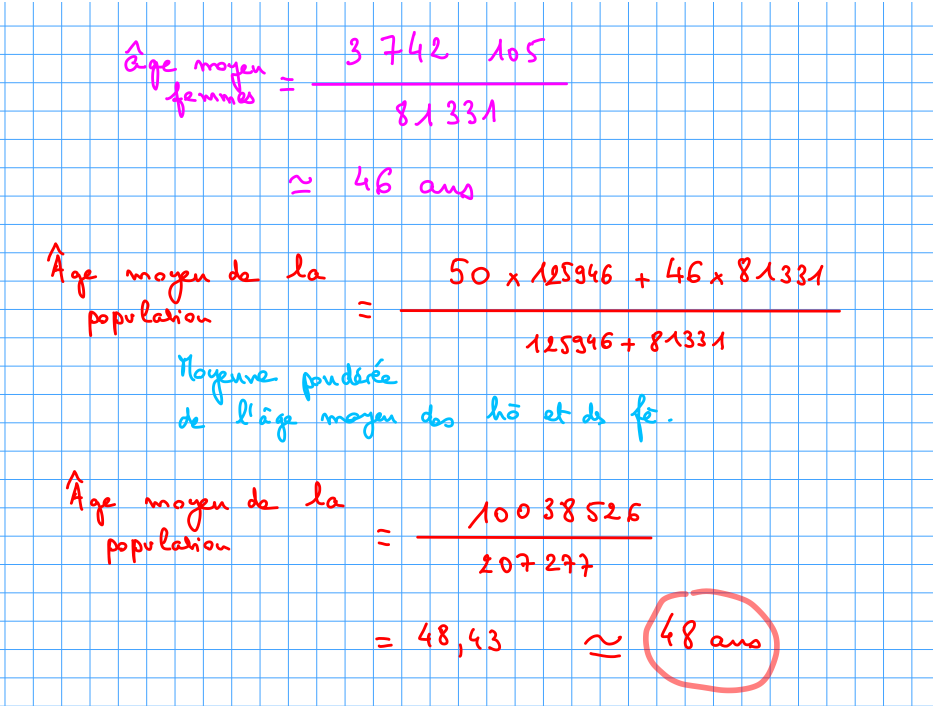 âge moyen femmes = 3 742 105 / 81 331
≃ 46 ans
Âge moyen de la population = 50 × 125946 + 46 × 81331 / 125946 + 81331
Moyenne pondérée
de l'âge moyen des hō et ds fē.
Âge moyen de la population = 10038526 / 207 277
= 48,43 ≃ 48 ans